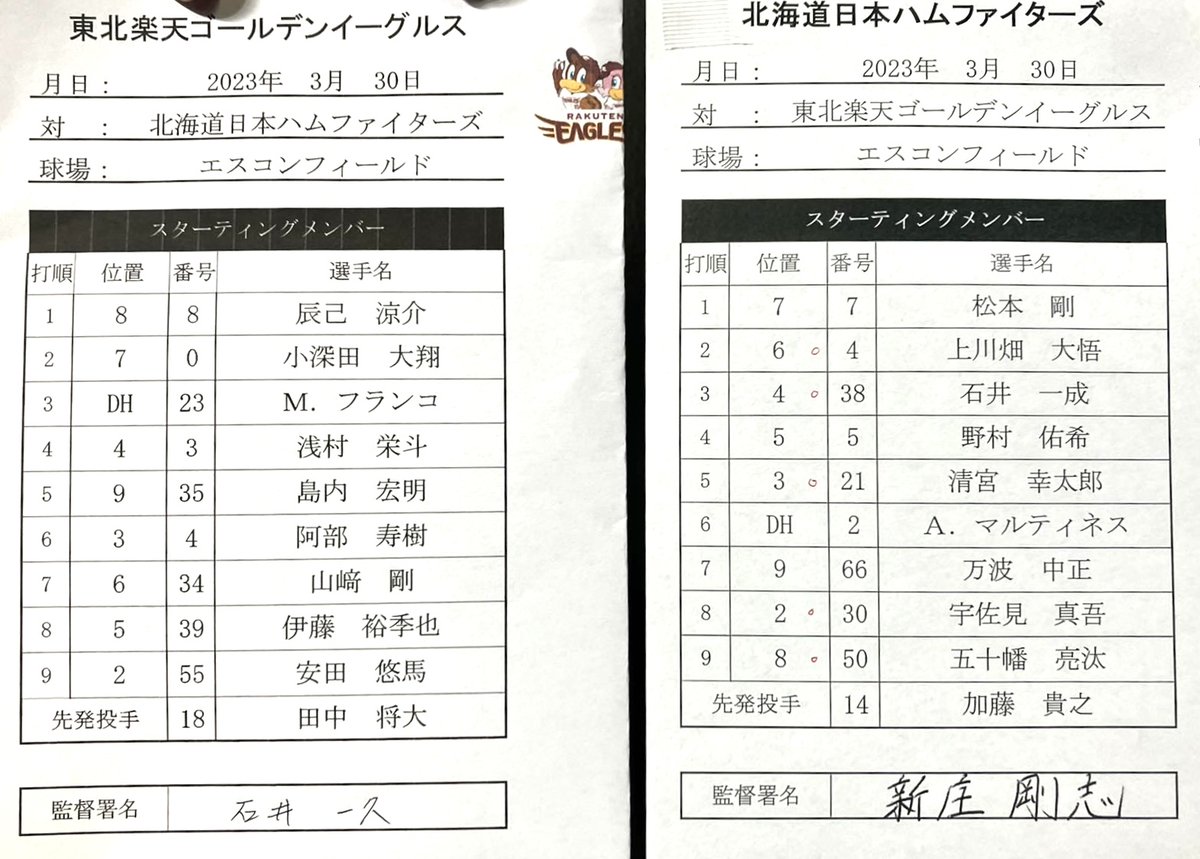 東北楽天ゴールデンイーグルス
月日： 2023年 3月 30日
対 ： 北海道日本ハムファイターズ
球場： エスコンフィールド
RAKUTEN
EAGLES
スターティングメンバー
打順 位置 番号 選手名
1 8 8 辰己 涼介
2 7 0 小深田 大翔
3 DH 23 M．フランコ
4 4 3 浅村 栄斗
5 9 35 島内 宏明
6 3 4 阿部 寿樹
7 6 34 山﨑 剛
8 5 39 伊藤 裕季也
9 2 55 安田 悠馬
先発投手 18 田中 将大
監督署名 石井 一久
北海道日本ハムファイターズ
月日： 2023年 3月 30日
対 ： 東北楽天ゴールデンイーグルス
球場： エスコンフィールド
スターティングメンバー
打順 位置 番号 選手名
1 7 7 松本 剛
2 6 4 上川畑 大悟
3 4 38 石井 一成
4 5 5 野村 佑希
5 3 21 清宮 幸太郎
6 DH 2 A．マルティネス
7 9 66 万波 中正
8 2 30 宇佐見 真吾
9 8 50 五十幡 亮汰
先発投手 14 加藤 貴之
監督署名 新庄 剛志